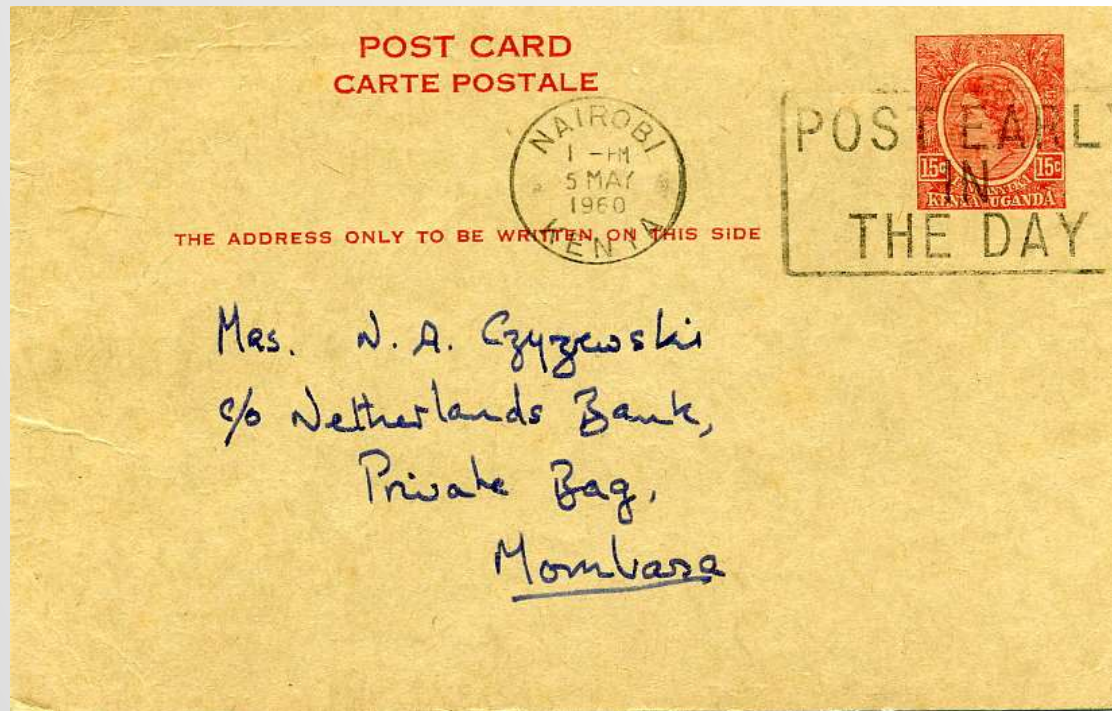 POST CARD
CARTE POSTALE
NAIROBI
1 - PM
5 MAY
1960
KENYA
POST EARLY
IN
THE DAY
15c 15c
KENYA UGANDA
THE ADDRESS ONLY TO BE WRITTEN ON THIS SIDE
Mrs. N. A. Czyzewski
c/o Netherlands Bank,
Private Bag,
Mombasa